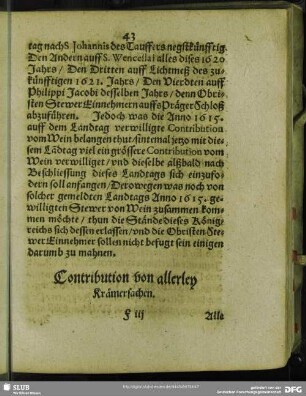 43
tag nach S. Johannis des Tauffers negstkünfftig.
Den Andern auff S. Wencellai alles dises 1620
Jahrs / Den Dritten auff Lichtmeß des zu-
künfftigen 1621. Jahrs / Den Vierdten auff
Philippi Jacobi desselben Jahrs / denn Obris-
sten Stewer Einnehmern auffs Präger Schloß
abzuführen. Jedoch was die Anno 1615.
auff dem Landtag verwilligte Contribution
vom Wein belangen thut / sintemal jezo mit die-
sem Lādtag viel ein grössere Contribution vom
Wein verwilliget / vnd dieselbe alßbald nach
Beschliessung dieses Landtags sich einzufo-
dern soll anfangen / Derowegen was noch von
solcher gemeldten Landtags Anno 1615. ge-
willigten Stewer von Wein zusammen kom-
men möchte / thun die Stände dieses König-
reichs sich dessen erlassen / vnd die Obristen Ste-
wer Einnehmer sollen nicht befugt sein einigen
darumb zu mahnen.
Contribution von allerley
Krämersachen.
F iij
Alle
SLUB
Wir führen Wissen.